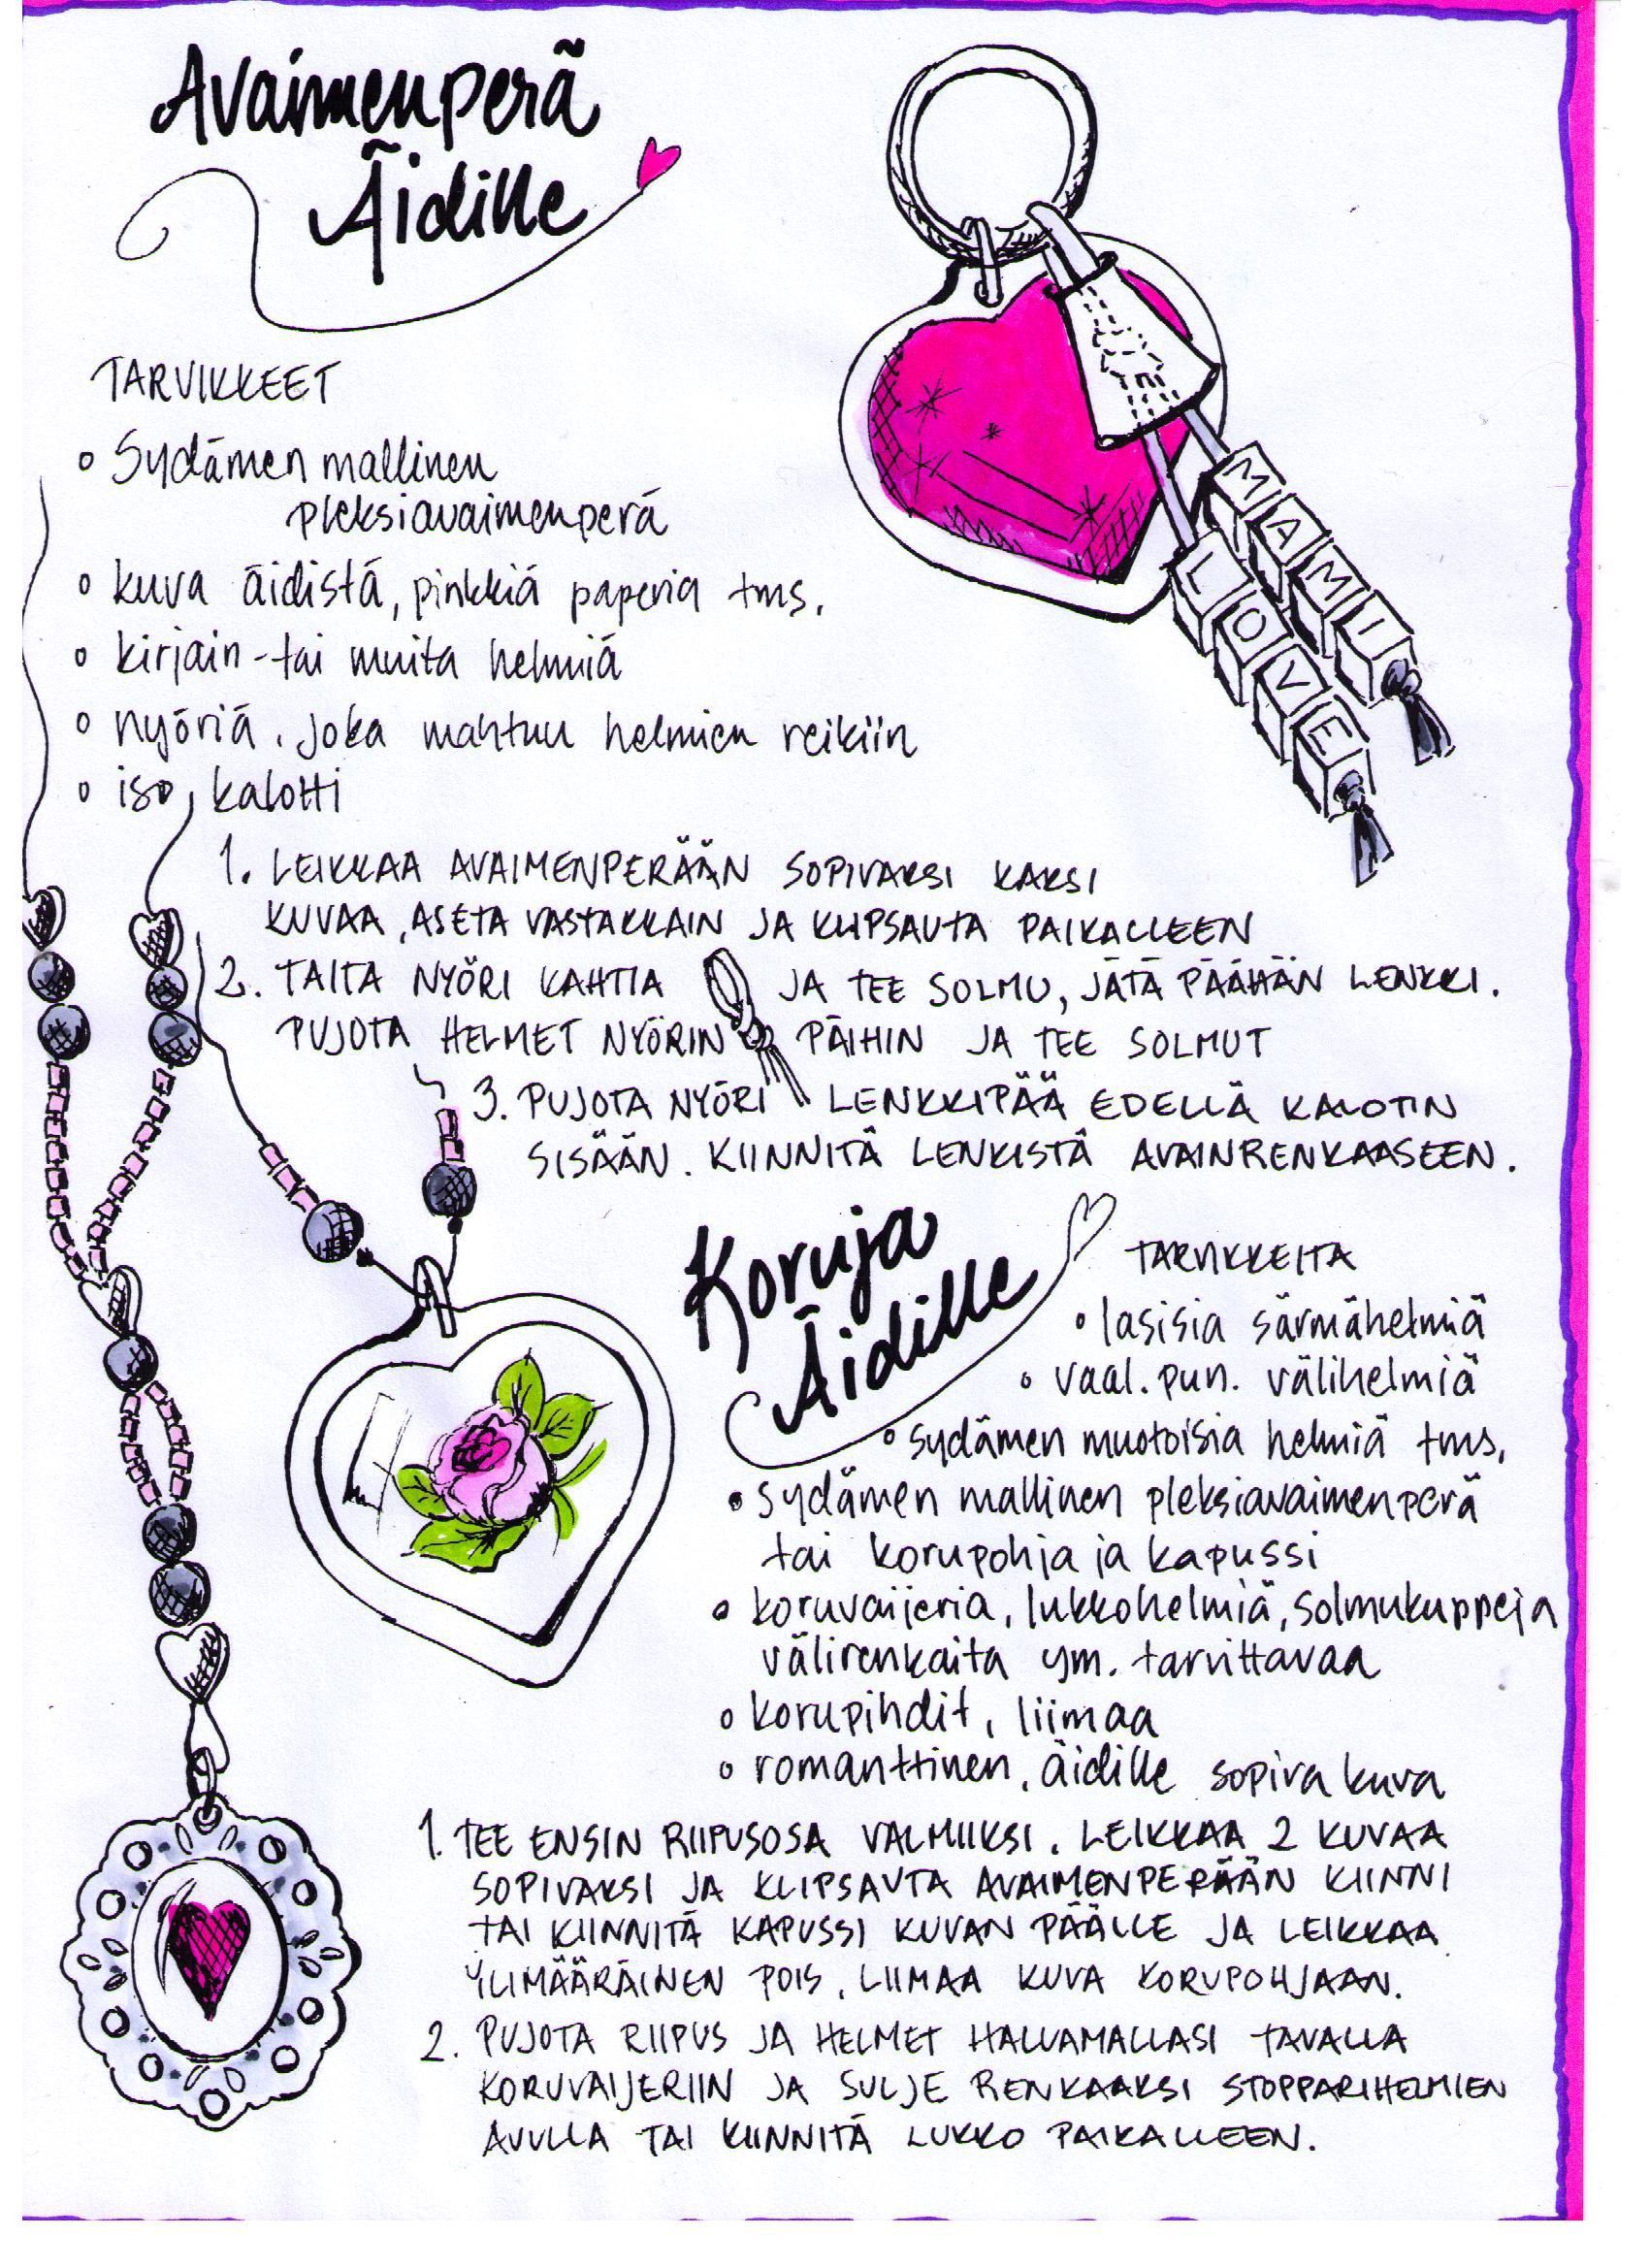 Avaimenperä
Äidille
TARVIKKEET
o Sydämen mallinen
pleksiavaimenperä
o kuva äidistä, pinkkiä paperia tms.
o kirjain- tai muita helmiä
o nyöriä, joka mahtuu helmien reikiin
o iso kalotti
MAMI
LOVE
1. LEIKKAA AVAIMENPERÄÄN SOPIVAKSI KAKSI
KUVAA, ASETA VASTAKKAIN JA KLIPSAUTA PAIKALLEEN
2. TAITA NYÖRI KAHTIA JA TEE SOLMU, JÄTÄ PÄÄHÄN LENKKI.
PUJOTA HELMET NYÖRIN PÄIHIN JA TEE SOLMUT
3. PUJOTA NYÖRI LENKKIPÄÄ EDELLÄ KALOTIN
SISÄÄN. KIINNITÄ LENKISTÄ AVAINRENKAASEEN.
Koruja
Äidille
TARVIKKEITA
• lasisia särmähelmiä
• vaal. pun. välihelmiä
• sydämen muotoisia helmiä tms.
• sydämen mallinen pleksiavaimenperä
tai korupohja ja kapussi
• koruvaijeria, lukkohelmiä, solmukuppeja
välirenkaita ym. tarvittavaa
o korupihdit, liimaa
o romanttinen, äidille sopiva kuva
1. TEE ENSIN RIIPUSOSA VALMIIKSI. LEIKKAA 2 KUVAA
SOPIVAKSI JA KLIPSAUTA AVAIMENPERÄÄN KIINNI
TAI KIINNITÄ KAPUSSI KUVAN PÄÄLLE JA LEIKKAA
YLIMÄÄRÄINEN POIS. LIIMAA KUVA KORUPOHJAAN.
2. PUJOTA RIIPUS JA HELMET HALUAMALLASI TAVALLA
KORUVAIJERIIN JA SULJE RENKAAKSI STOPPARIHELMIEN
AVULLA TAI KIINNITÄ LUKKO PAIKALLEEN.